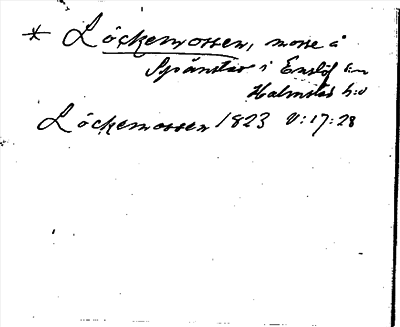 * Löckemossen, mosse å
Spånstad i Enslöf sn
Halmstad h:d
Löckemossen 1823 V:17:28